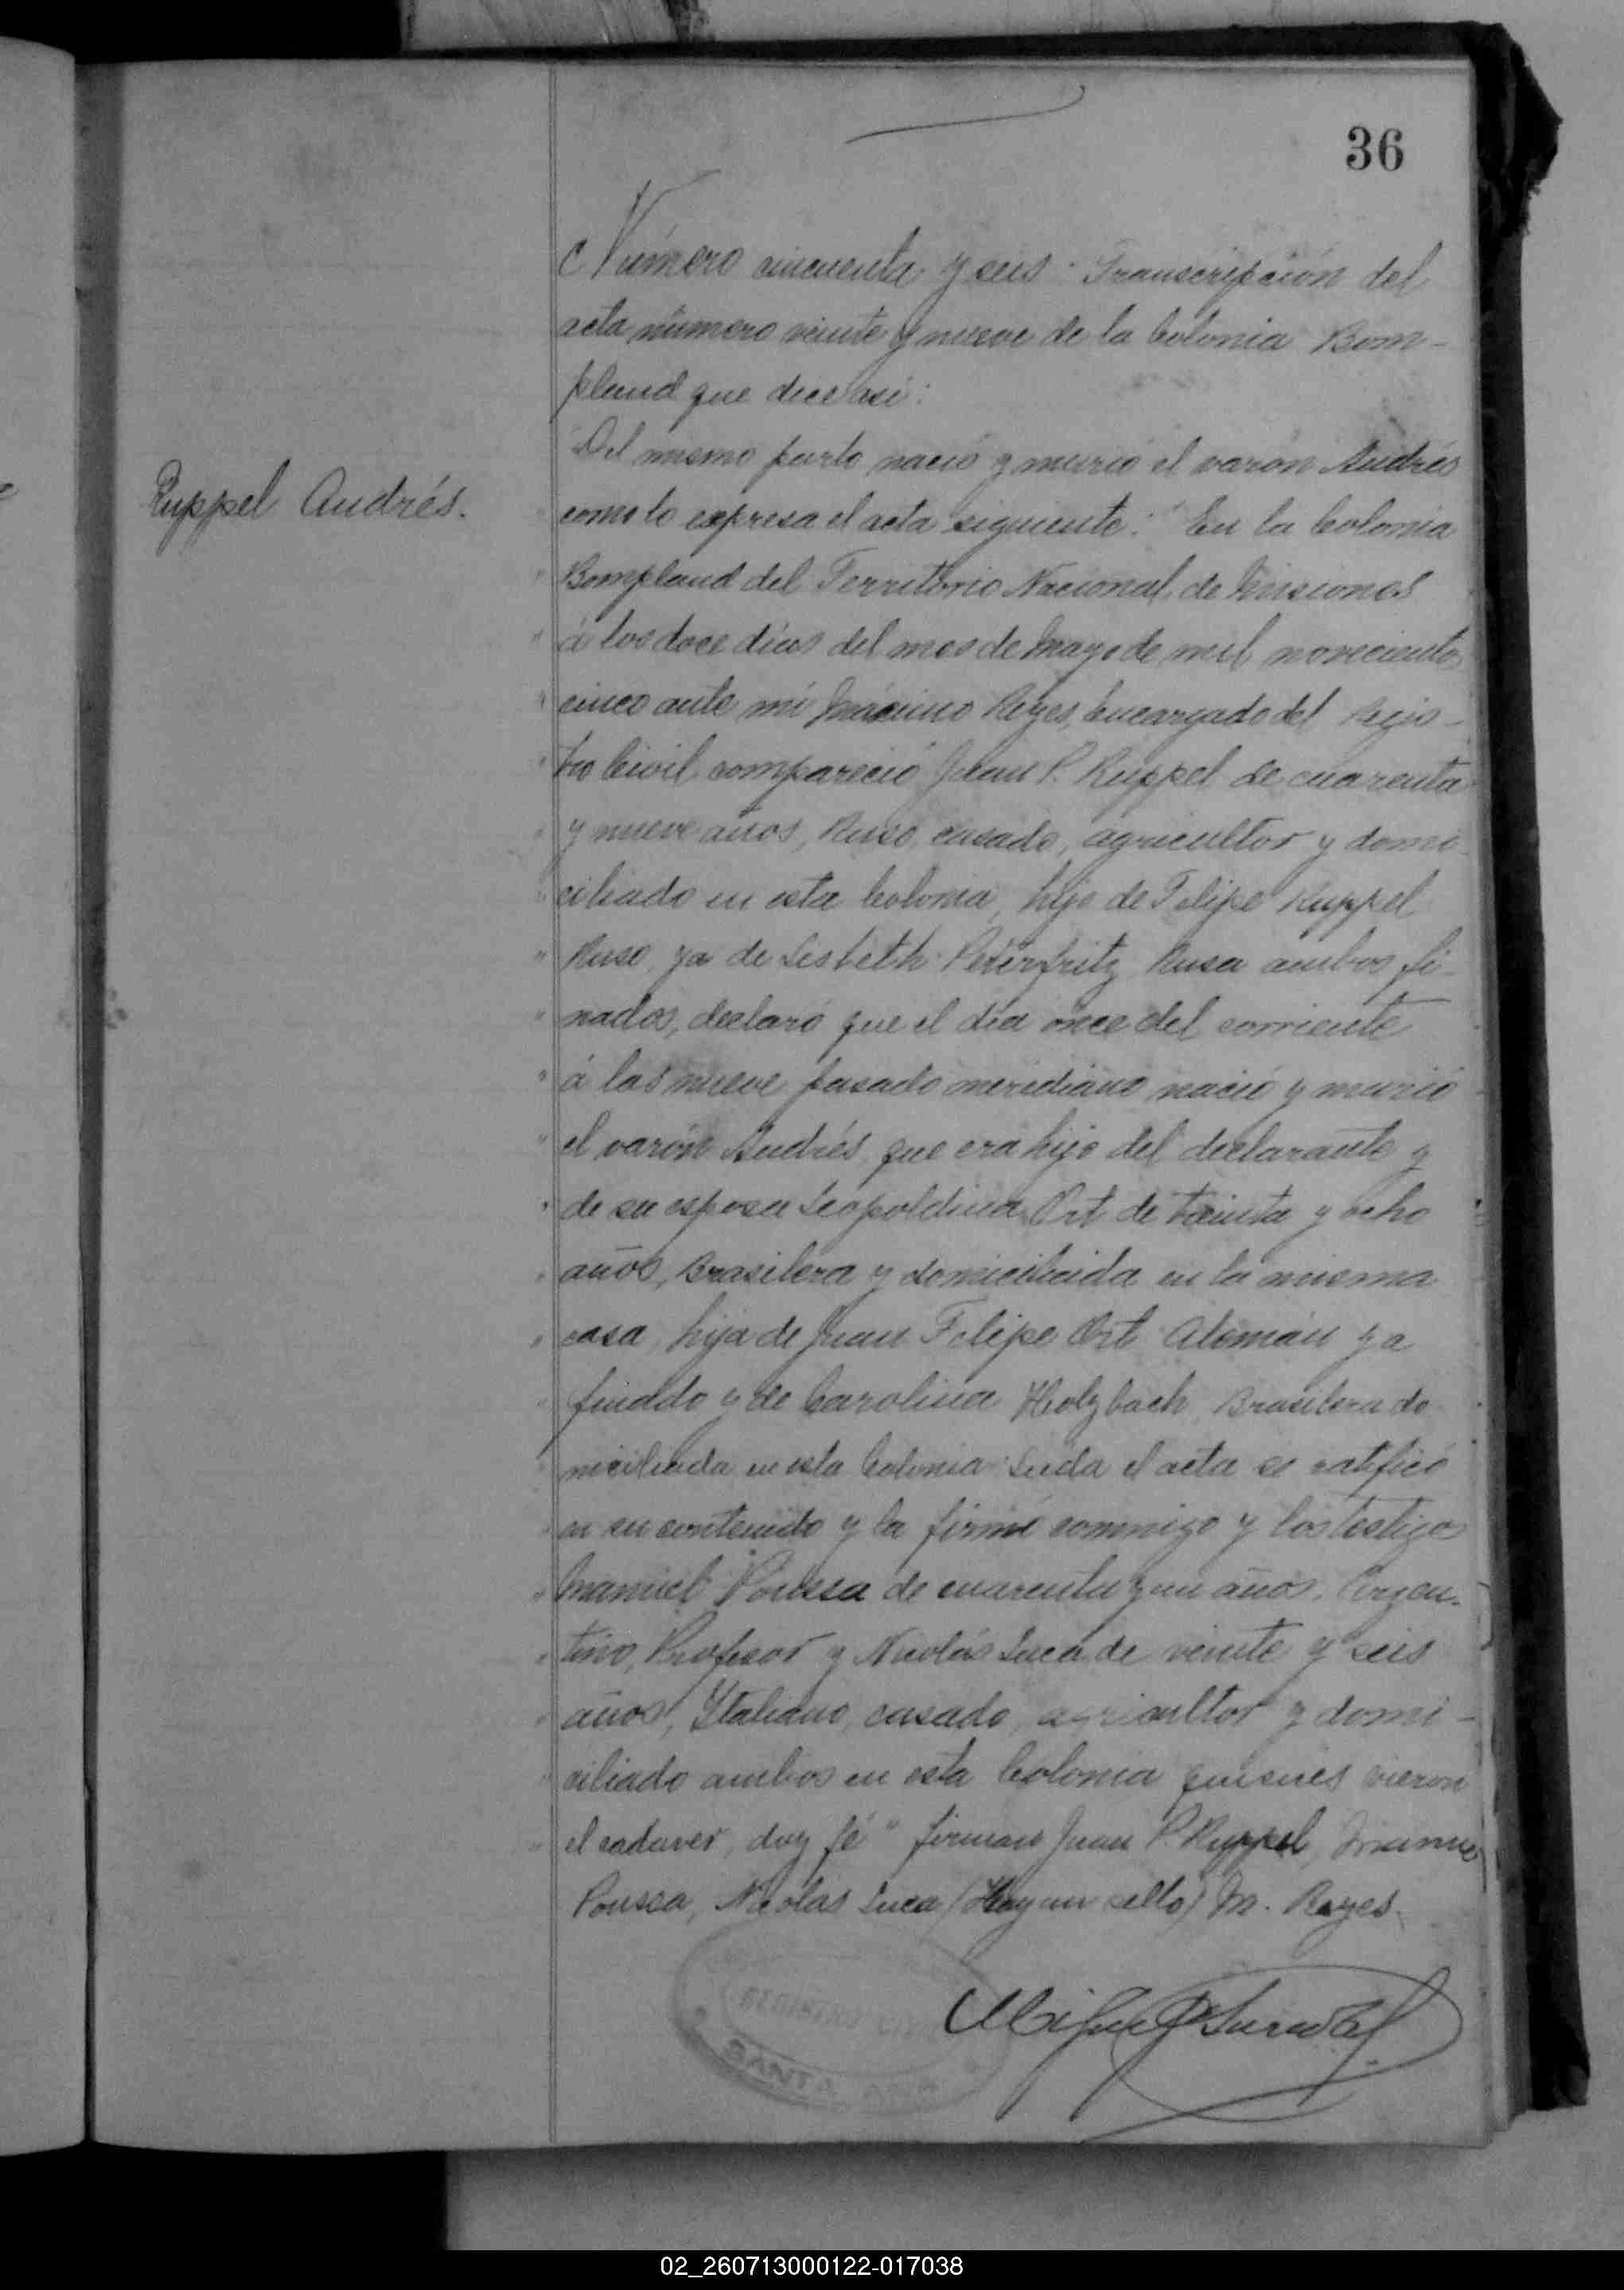 36
Número cincuenta y seis. Transcripción del
acta número veinte y nueve de la Colonia Bom-
pland que dice así:
Ruppel Andrés.
"Del mismo parto nació y murió el varon Andrés
" como lo expresa el acta siguiente: "En la Colonia
" Bompland del Territorio Nacional de Misiones
" á los doce dias del mes de Mayo de mil novecientos
" cinco ante mí Máximo Reyes, Encargado del Regis-
" tro Civil compareció Juan P. Ruppel de cuarenta
" y nueve años, Ruso, casado, agricultor y domi-
" ciliado en esta Colonia, hijo de Felipe Ruppel
" Ruso, ya de Lisbeth Peterfritz Rusa ambos fi-
" nados, declaró que el día once del corriente
" á las nueve pasado meridiano nació y murió
" el varón Andrés, que era hijo del declarante y
" de su esposa Leopoldina Ort de treinta y ocho
" años, Brasilera y domiciliada en la misma
" casa, hija de Juan Felipe Ort Alemán ya
" finado y de Carolina Holzbach, Brasilera do-
" miciliada en esta Colonia. Leida el acta se ratificó
" en su contenido y la firmó conmigo y los testigos
" Manuel Poussa de cuarenta y un años, Argen-
" tino, Profesor y Nicolás Luca de veinte y seis
" años, Ytaliano, casado, agricultor y domi-
" ciliado ambos en esta Colonia quienes vieron
" el cadaver, doy fé" firman Juan P. Ruppel, Manuel
Poussa, Nicolas Luca (Hay un sello) M. Reyes.
REGISTRO CIVIL
SANTA ANA
02_260713000122-017038